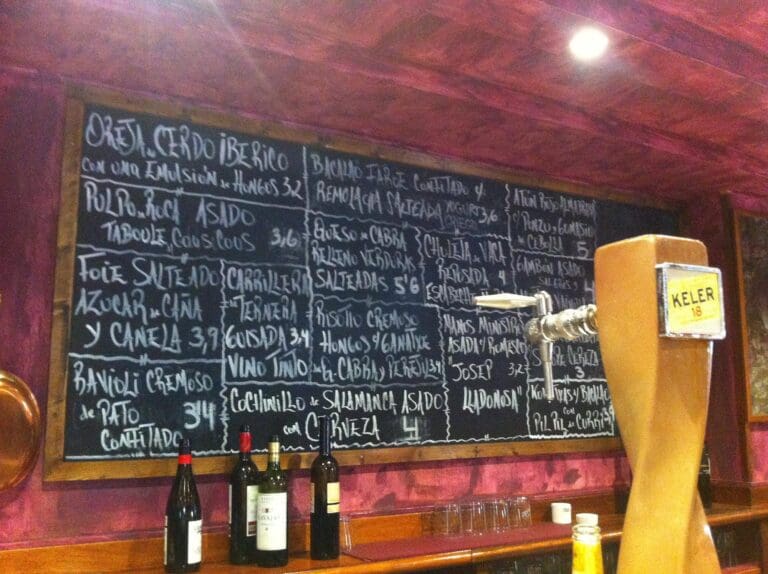 OREJA de CERDO IBERICO
CON UNA EMULSION de HONGOS 3,2
PULPO de ROCA ASADO
TABOULE de COUS COUS 3,6
FOIE SALTEADO
AZUCAR de CAÑA
Y CANELA 3,9
CARRILLERA
de TERNERA
GUISADA 3,4
VINO TINTO
RAVIOLI CREMOSO
de PATO 3'4
CONFITADO
BACALAO CONFITADO Y
REMOLACHA SALTEADA YOGURT
GRIEGO 3,6
QUESO de CABRA
RELLENO VERDURAS
SALTEADAS 5'6
RISOTTO CREMOSO
HONGOS Y
de G. CABRA Y PEREJIL 3,4
COCHINILLO de SALAMANCA ASADO
CON CERVEZA 4
CHULETA de VACA
REPOSADA 4
MANOS MINISTRO
ASADA Y ROMESCO
"JOSEP 3,2
LLADONOSA"
ATUN
CEBOLLA 5
GAMBON ASADO
CERVEZA
3
Y BACALAO
CON
PIL PIL de CURRY
KELER
18